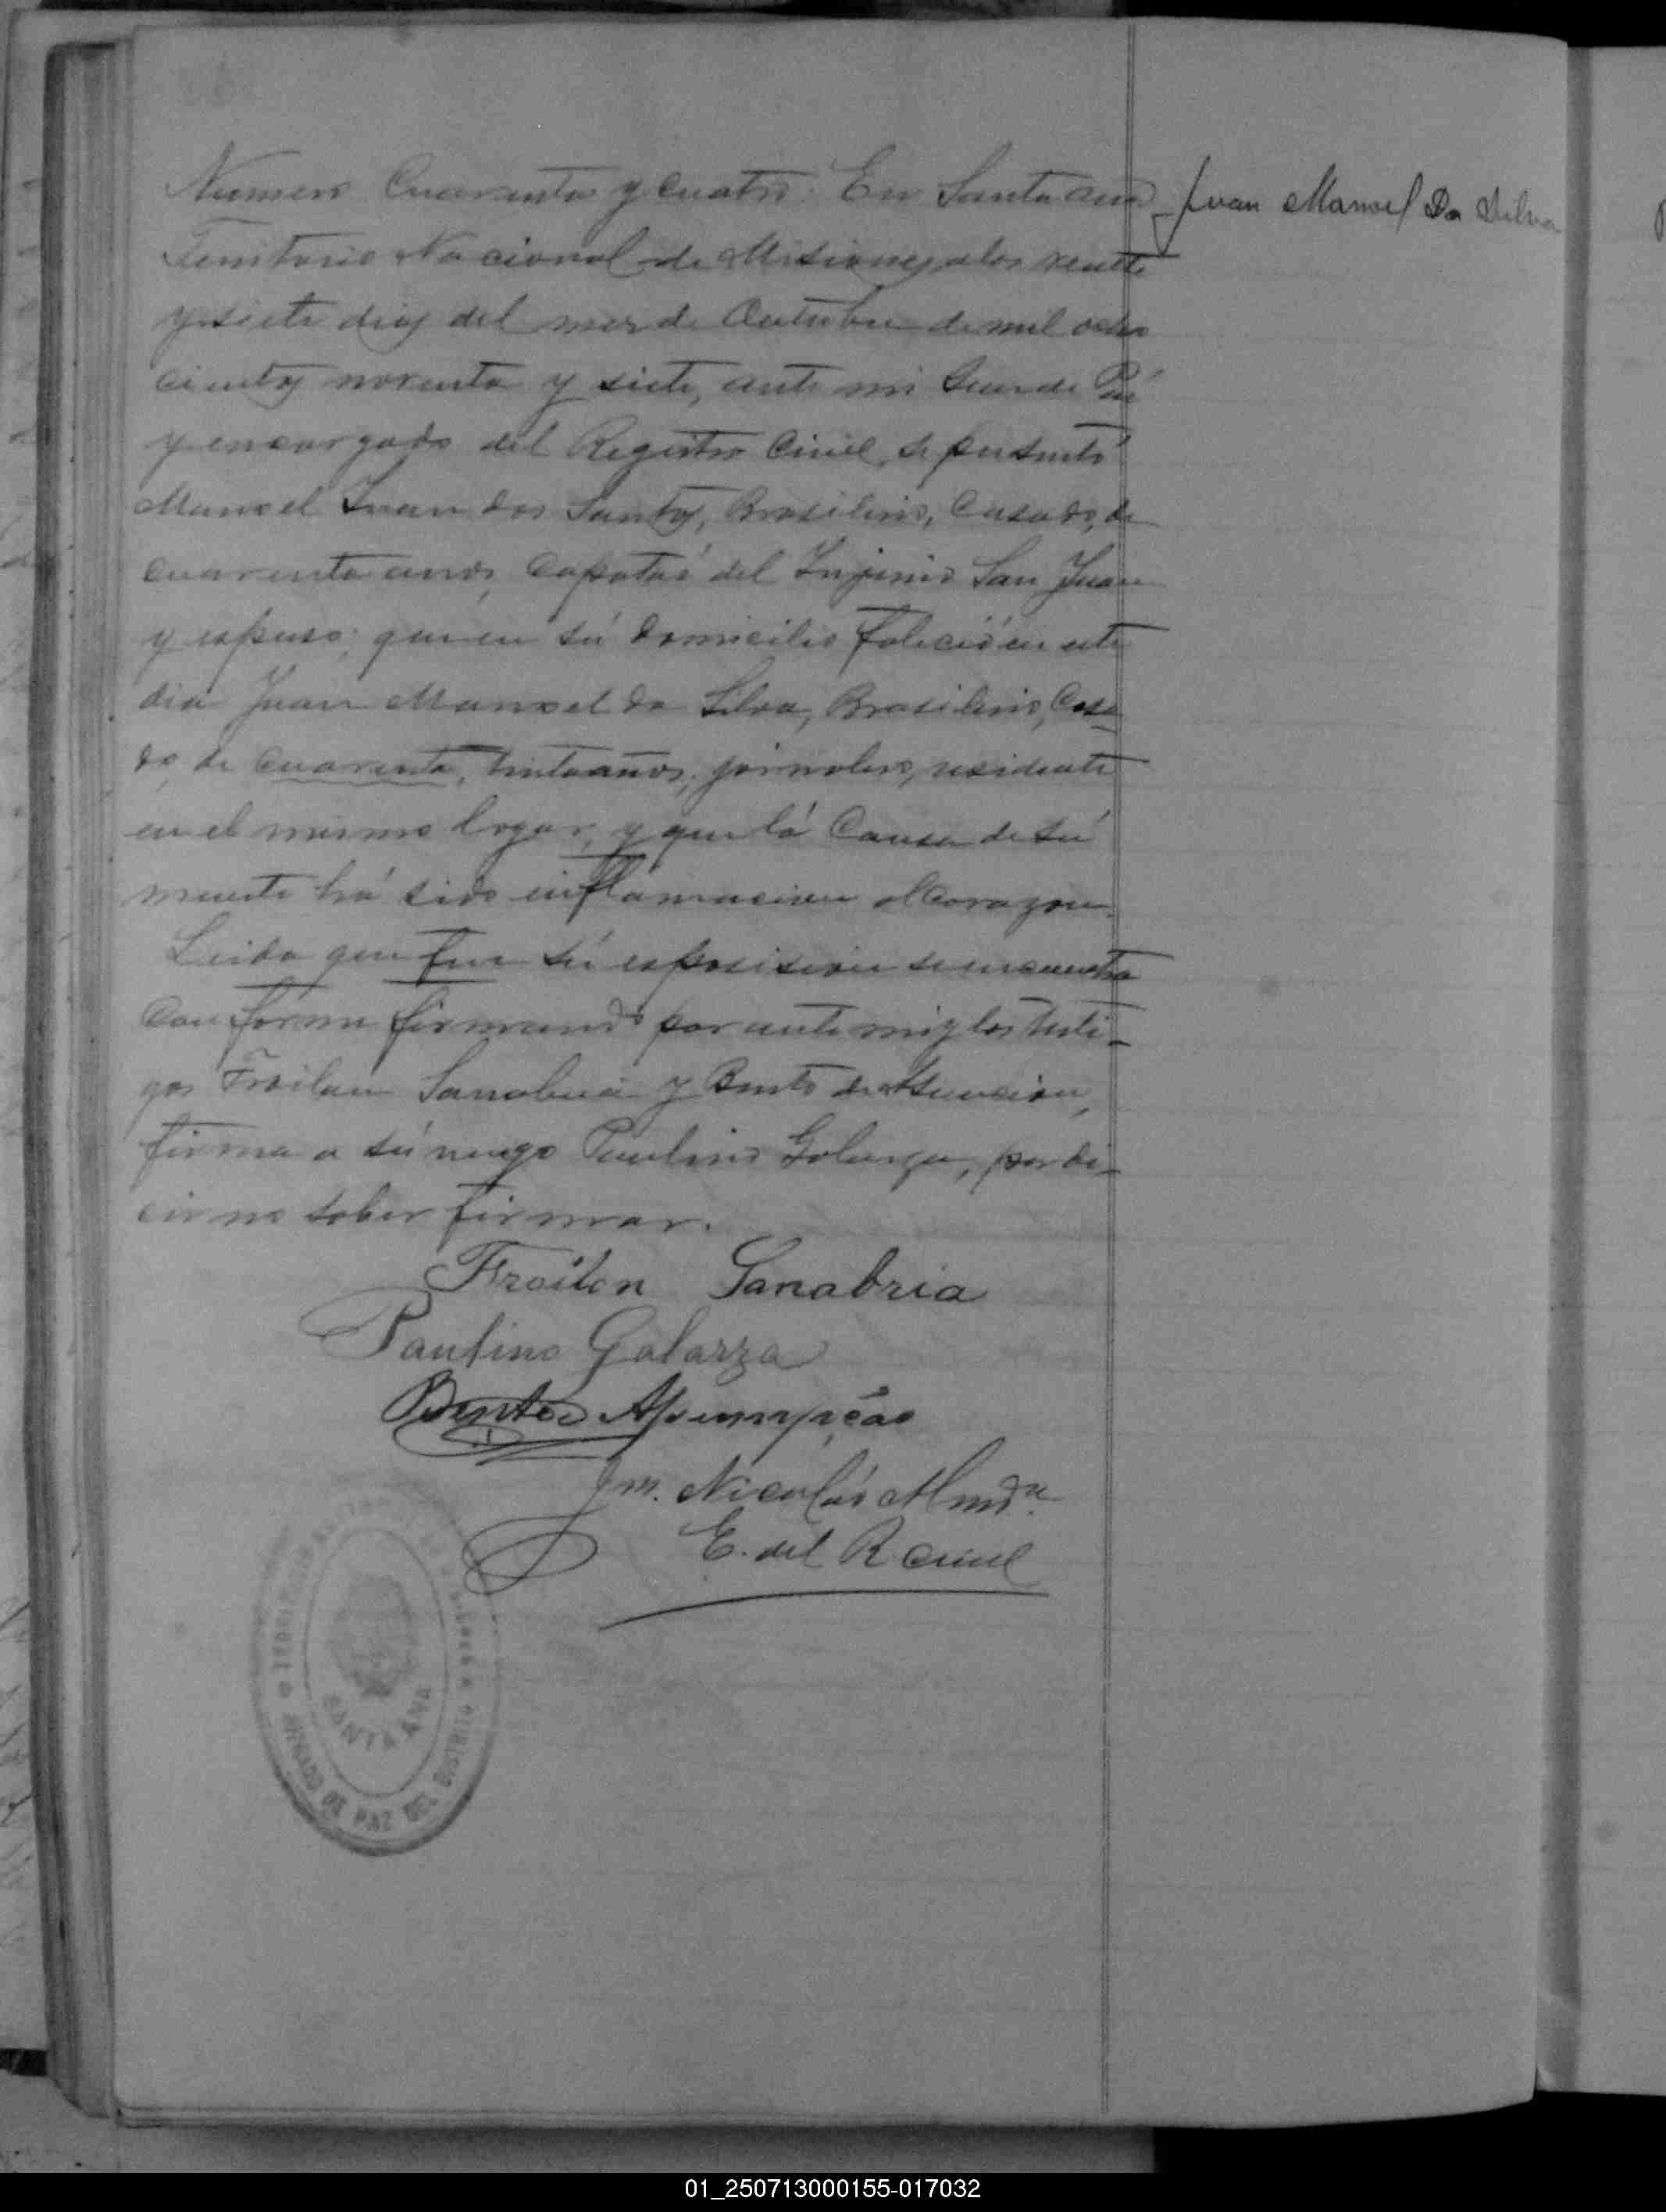 Numero Cuarenta y Cuatro. En Santa Ana
Juan Manoel Da Silva
Territorio Nacional de Misiones, a los veinte
y siete dias del mes de Outubre de mil ocho
cientos noventa y siete, ante mi Juez de Paz
y encargado del Registro Civil, se presentó
Manoel Juan dos Santos, Brasilero, Casado, de
cuarenta anos, Capataz del Injenio San Juan
y espuso; que en sú domicilio falició en este
dia Juan Manoel da Silva, Brasilero, Casa-
do, de Cuarenta, trinta anos, jornalero, residente
en el mismo logar, y que lá Causa de sú
muerte há sido inflamacion al Corazon.
Leida que fue sú esposision se encuentra
Conforme firmando por ante mi y los testi-
gos Froilan Sanabria y Bento de Asuncion,
firma a sú ruego Paulino Golarza, por de-
cir no saber firmar.
Froilan Sanabria
Paulino Galarza
Bento Assumpcão
Nicolás
E. del R Civil
SANTA ANA
JUZGADO DE PAZ DEL DISTRITO
01_250713000155-017032